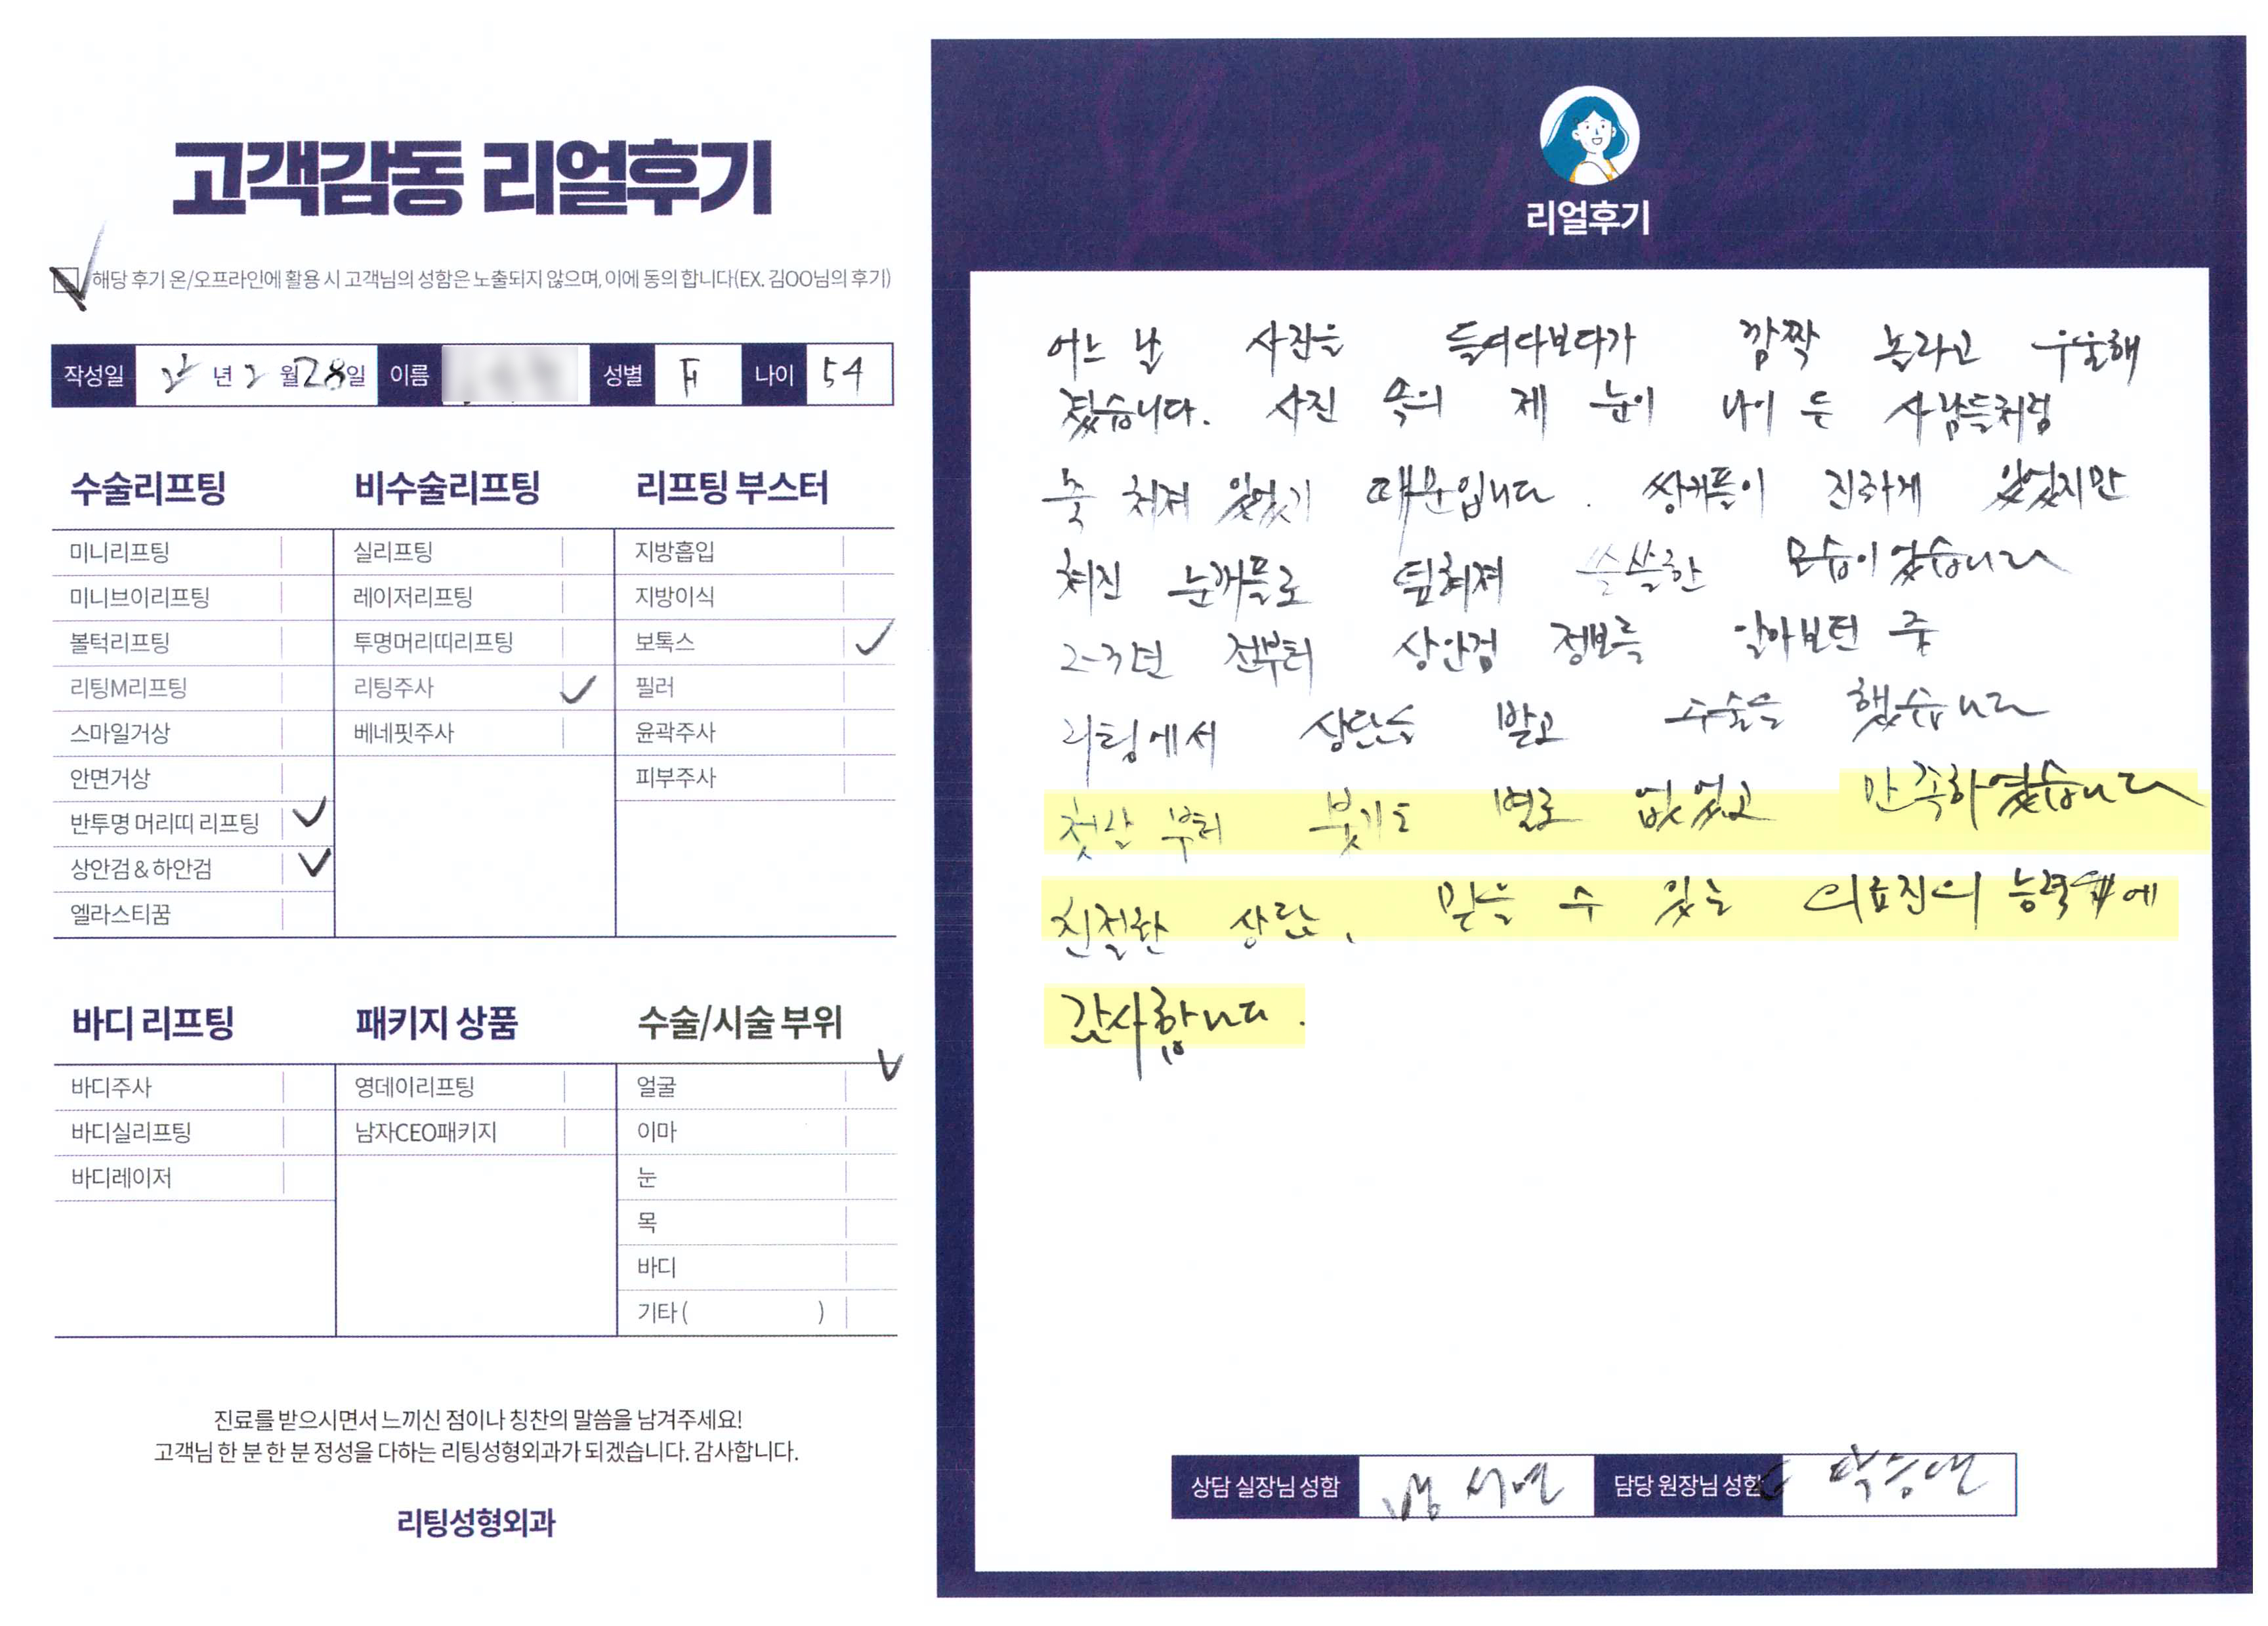 고객감동 리얼후기
해당 후기 온/오프라인에 활용 시 고객님의 성함은 노출되지 않으며, 이에 동의 합니다(EX. 김OO님의 후기)
작성일 년 2 월 28일 이름 성별 F 나이 54
수술리프팅
미니리프팅
미니브이리프팅
볼턱리프팅
리팅M리프팅
스마일거상
안면거상
반투명 머리띠 리프팅
상안검 & 하안검
엘라스티꿈
비수술리프팅
실리프팅
레이저리프팅
투명머리띠리프팅
리팅주사
베네핏주사
리프팅 부스터
지방흡입
지방이식
보톡스
필러
윤곽주사
피부주사
바디 리프팅
바디주사
바디실리프팅
바디레이저
패키지 상품
영데이리프팅
남자CEO패키지
수술/시술 부위
얼굴
이마
눈
목
바디
기타 ( )
진료를 받으시면서 느끼신 점이나 칭찬의 말씀을 남겨주세요!
고객님 한 분 한 분 정성을 다하는 리팅성형외과가 되겠습니다. 감사합니다.
리팅성형외과
리얼후기
어느 날 사진을 들여다보다가 깜짝 놀라고 우울해
졌습니다. 사진 속의 제 눈이 나이 든 사람들처럼
축 처져 있었기 때문입니다. 쌍커풀이 진하게 있었지만
쳐진 눈꺼풀로 덮혀져 쓸쓸한 모습이었습니다
2-3년 전부터 상안검 정보를 알아보던 중
리팅에서 상담을 받고 수술을 했습니다
첫날 부터 붓기도 별로 없었고 만족하였습니다
친절한 상담, 믿을 수 있는 의료진의 능력에
감사합니다.
상담 실장님 성함 담당 원장님 성함